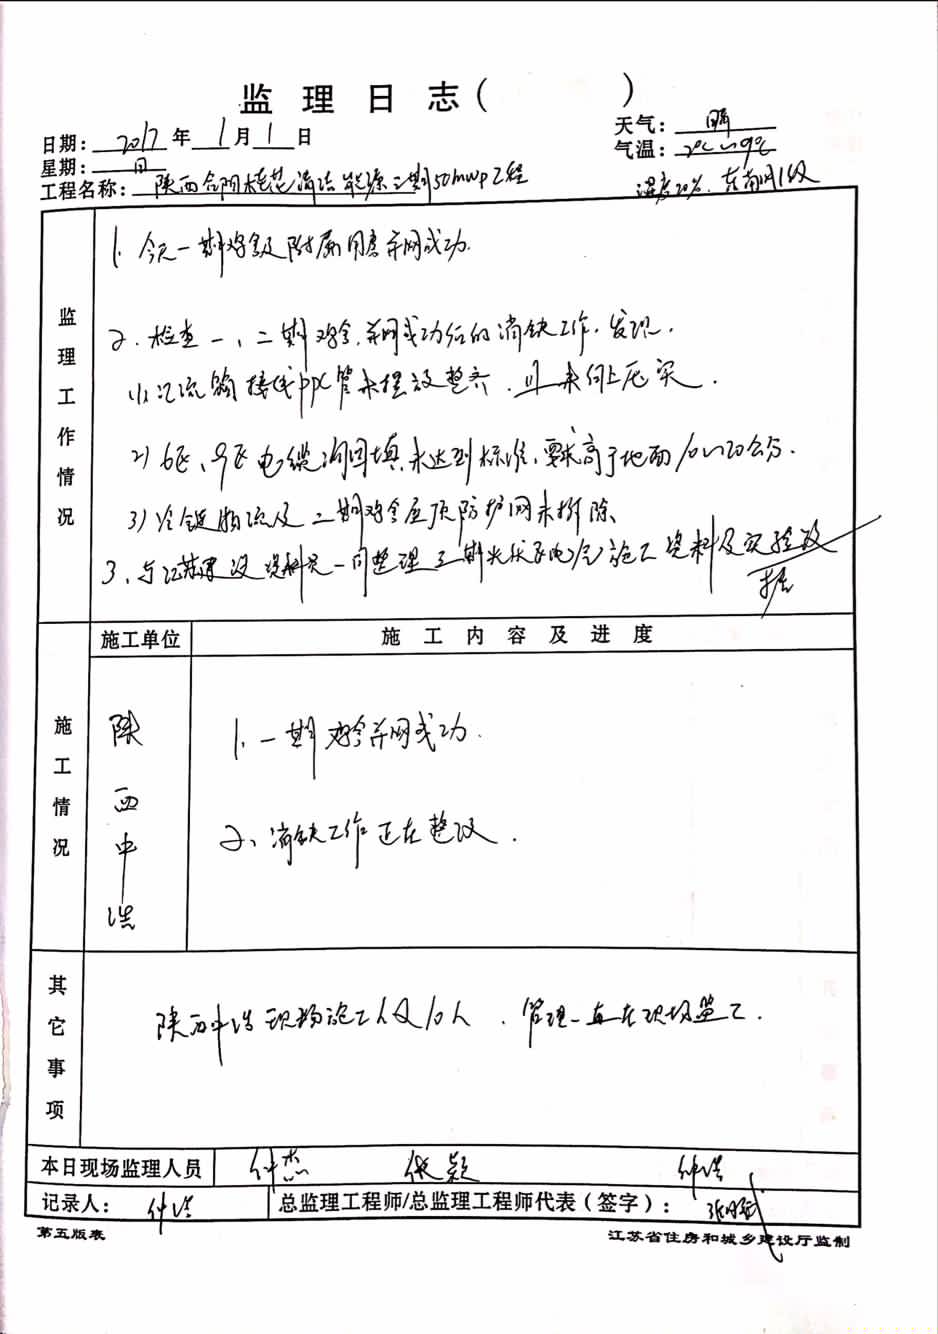 监理日志(          )
日期: 2017年1月1日
天气: 晴
星期: 日
气温: 2℃~9℃
工程名称: 陕西合阳 清洁能源二期50MWp工程
湿度20%. 东南风1级
监理工作情况
1. 今天一期 及附属 并网成功.
2. 检查一、二期 并网成功后的消缺工作, 发现.
(1) 汇流箱接线PPC管未摆放整齐, 且未 压实.
2) 6区、9区电缆沟回填未达到标准, 要求高于地面10~20公分.
3) 冷链物流及二期 屋顶防护网未拆除、
3、与江苏建设资料员一同整理 期光伏 施工资料及实验数
据
施工情况
施工单位
施工内容及进度
陕西中浩
1. 一期 并网成功.
2、消缺工作正在整改.
其它事项
陕西中浩现场施工人员10人, 管理一直在现场监工.
本日现场监理人员
仲杰 颖 仲浩
记录人: 仲浩
总监理工程师/总监理工程师代表(签字):
第五版表
江苏省住房和城乡建设厅监制